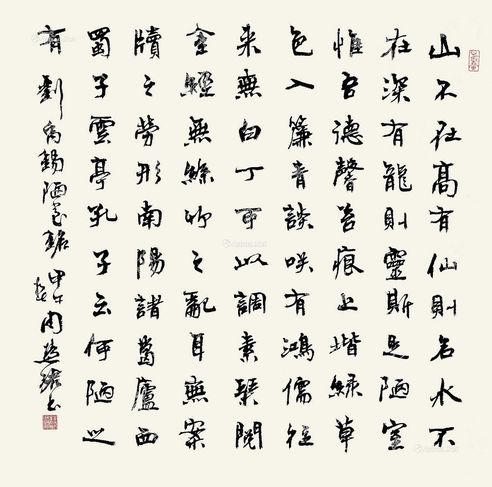 山不在高有仙則名水不
在深有龍則靈斯是陋室
惟吾德馨苔痕上堦綠草
色入簾青談咲有鴻儒往
来無白丁可以調素琴閱
金經無絲竹之亂耳無案
牘之勞形南陽諸葛廬西
蜀子雲亭孔子云何陋之
有 劉禹錫陋室銘 甲午 周 书